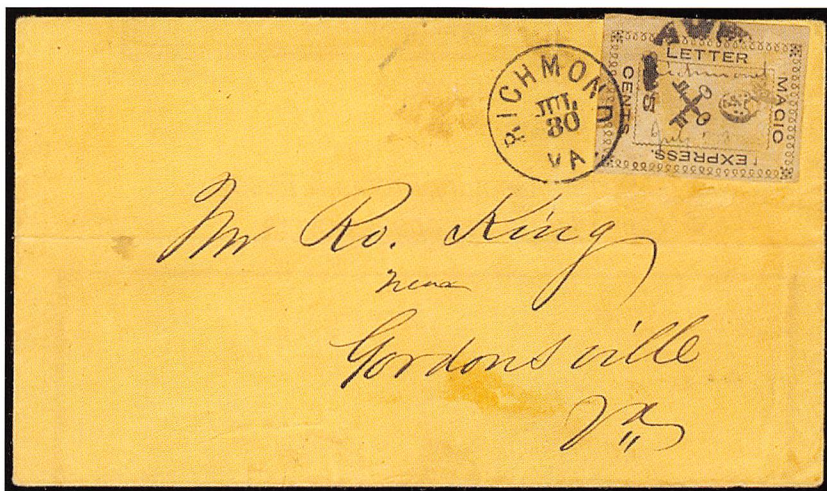 RICHMOND
JUL
30
VA.
LETTER
MAGIC
EXPRESS.
CENTS
5
Mr Ro. King
near
Gordonsville
Va